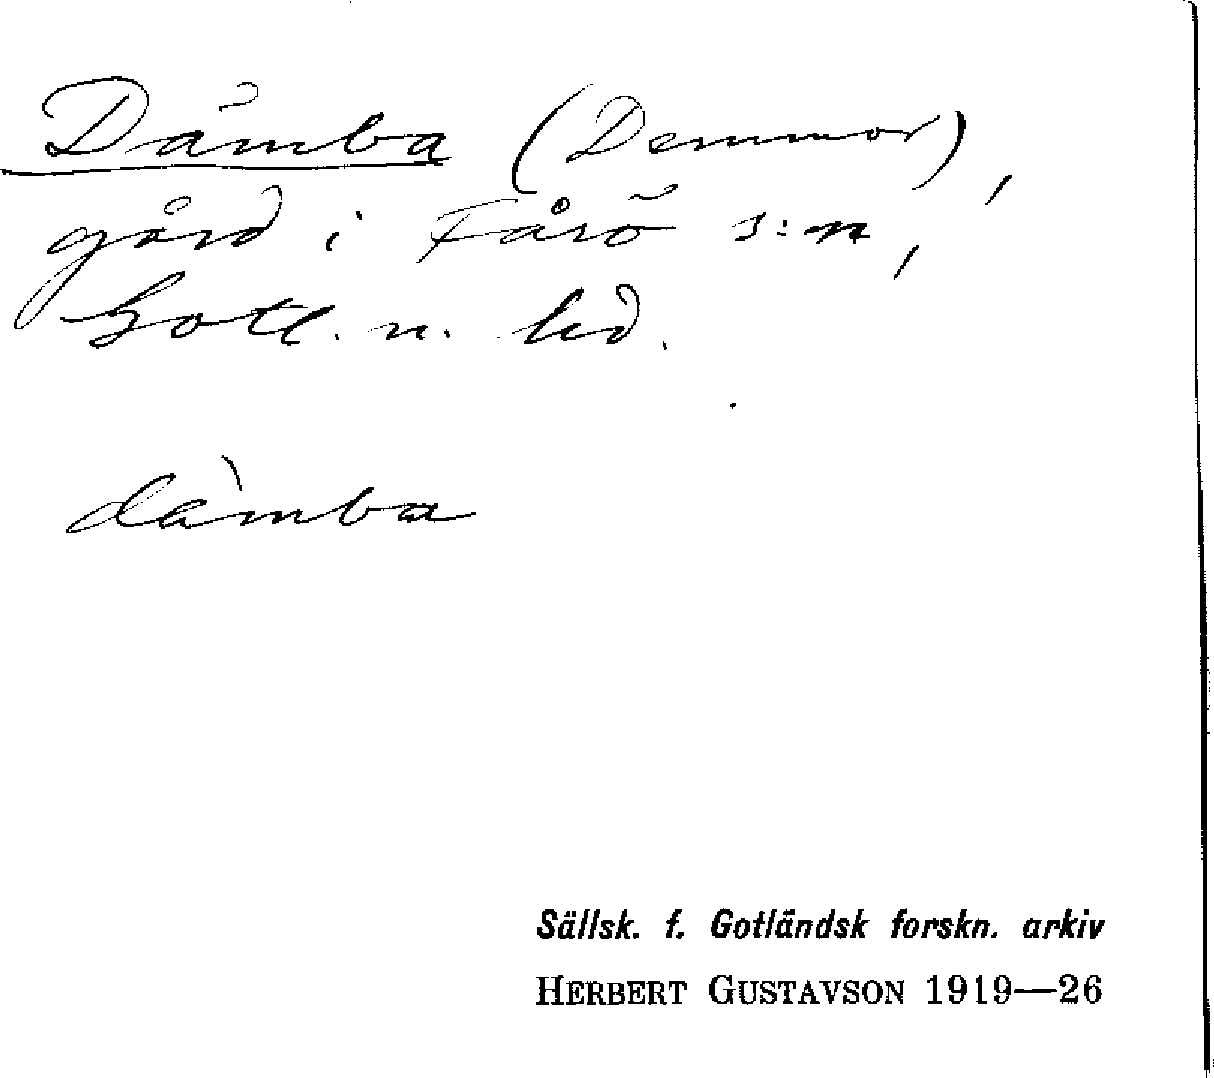 Dämba (Demmor),
gård i Fårö s:n,
Gotl. n. hd.
dàmba
Sällsk. f. Gotländsk forskn. arkiv
HERBERT GUSTAVSON 1919—26